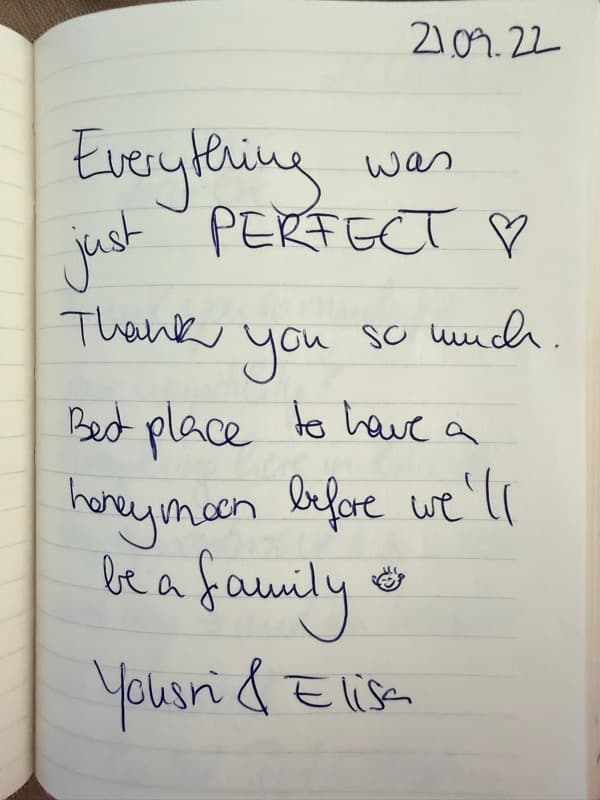 21.09.22
Everything was
just PERFECT ♡
Thank you so much.
Best place to have a
honeymoon before we'll
be a family
Yousri & Elisa